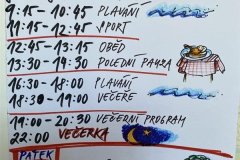 9:15-10:45 PLAVÁNÍ
11:15-12:45 SPORT
12:45-13:15 OBĚD
13:30-14:30 POLEDNÍ PAUZA
16:30-18:00 PLAVÁNÍ
18:30-19:30 VEČEŘE
19:00-20:30 VEČERNÍ PROGRAM
22:00 VEČERKA
PÁTEK